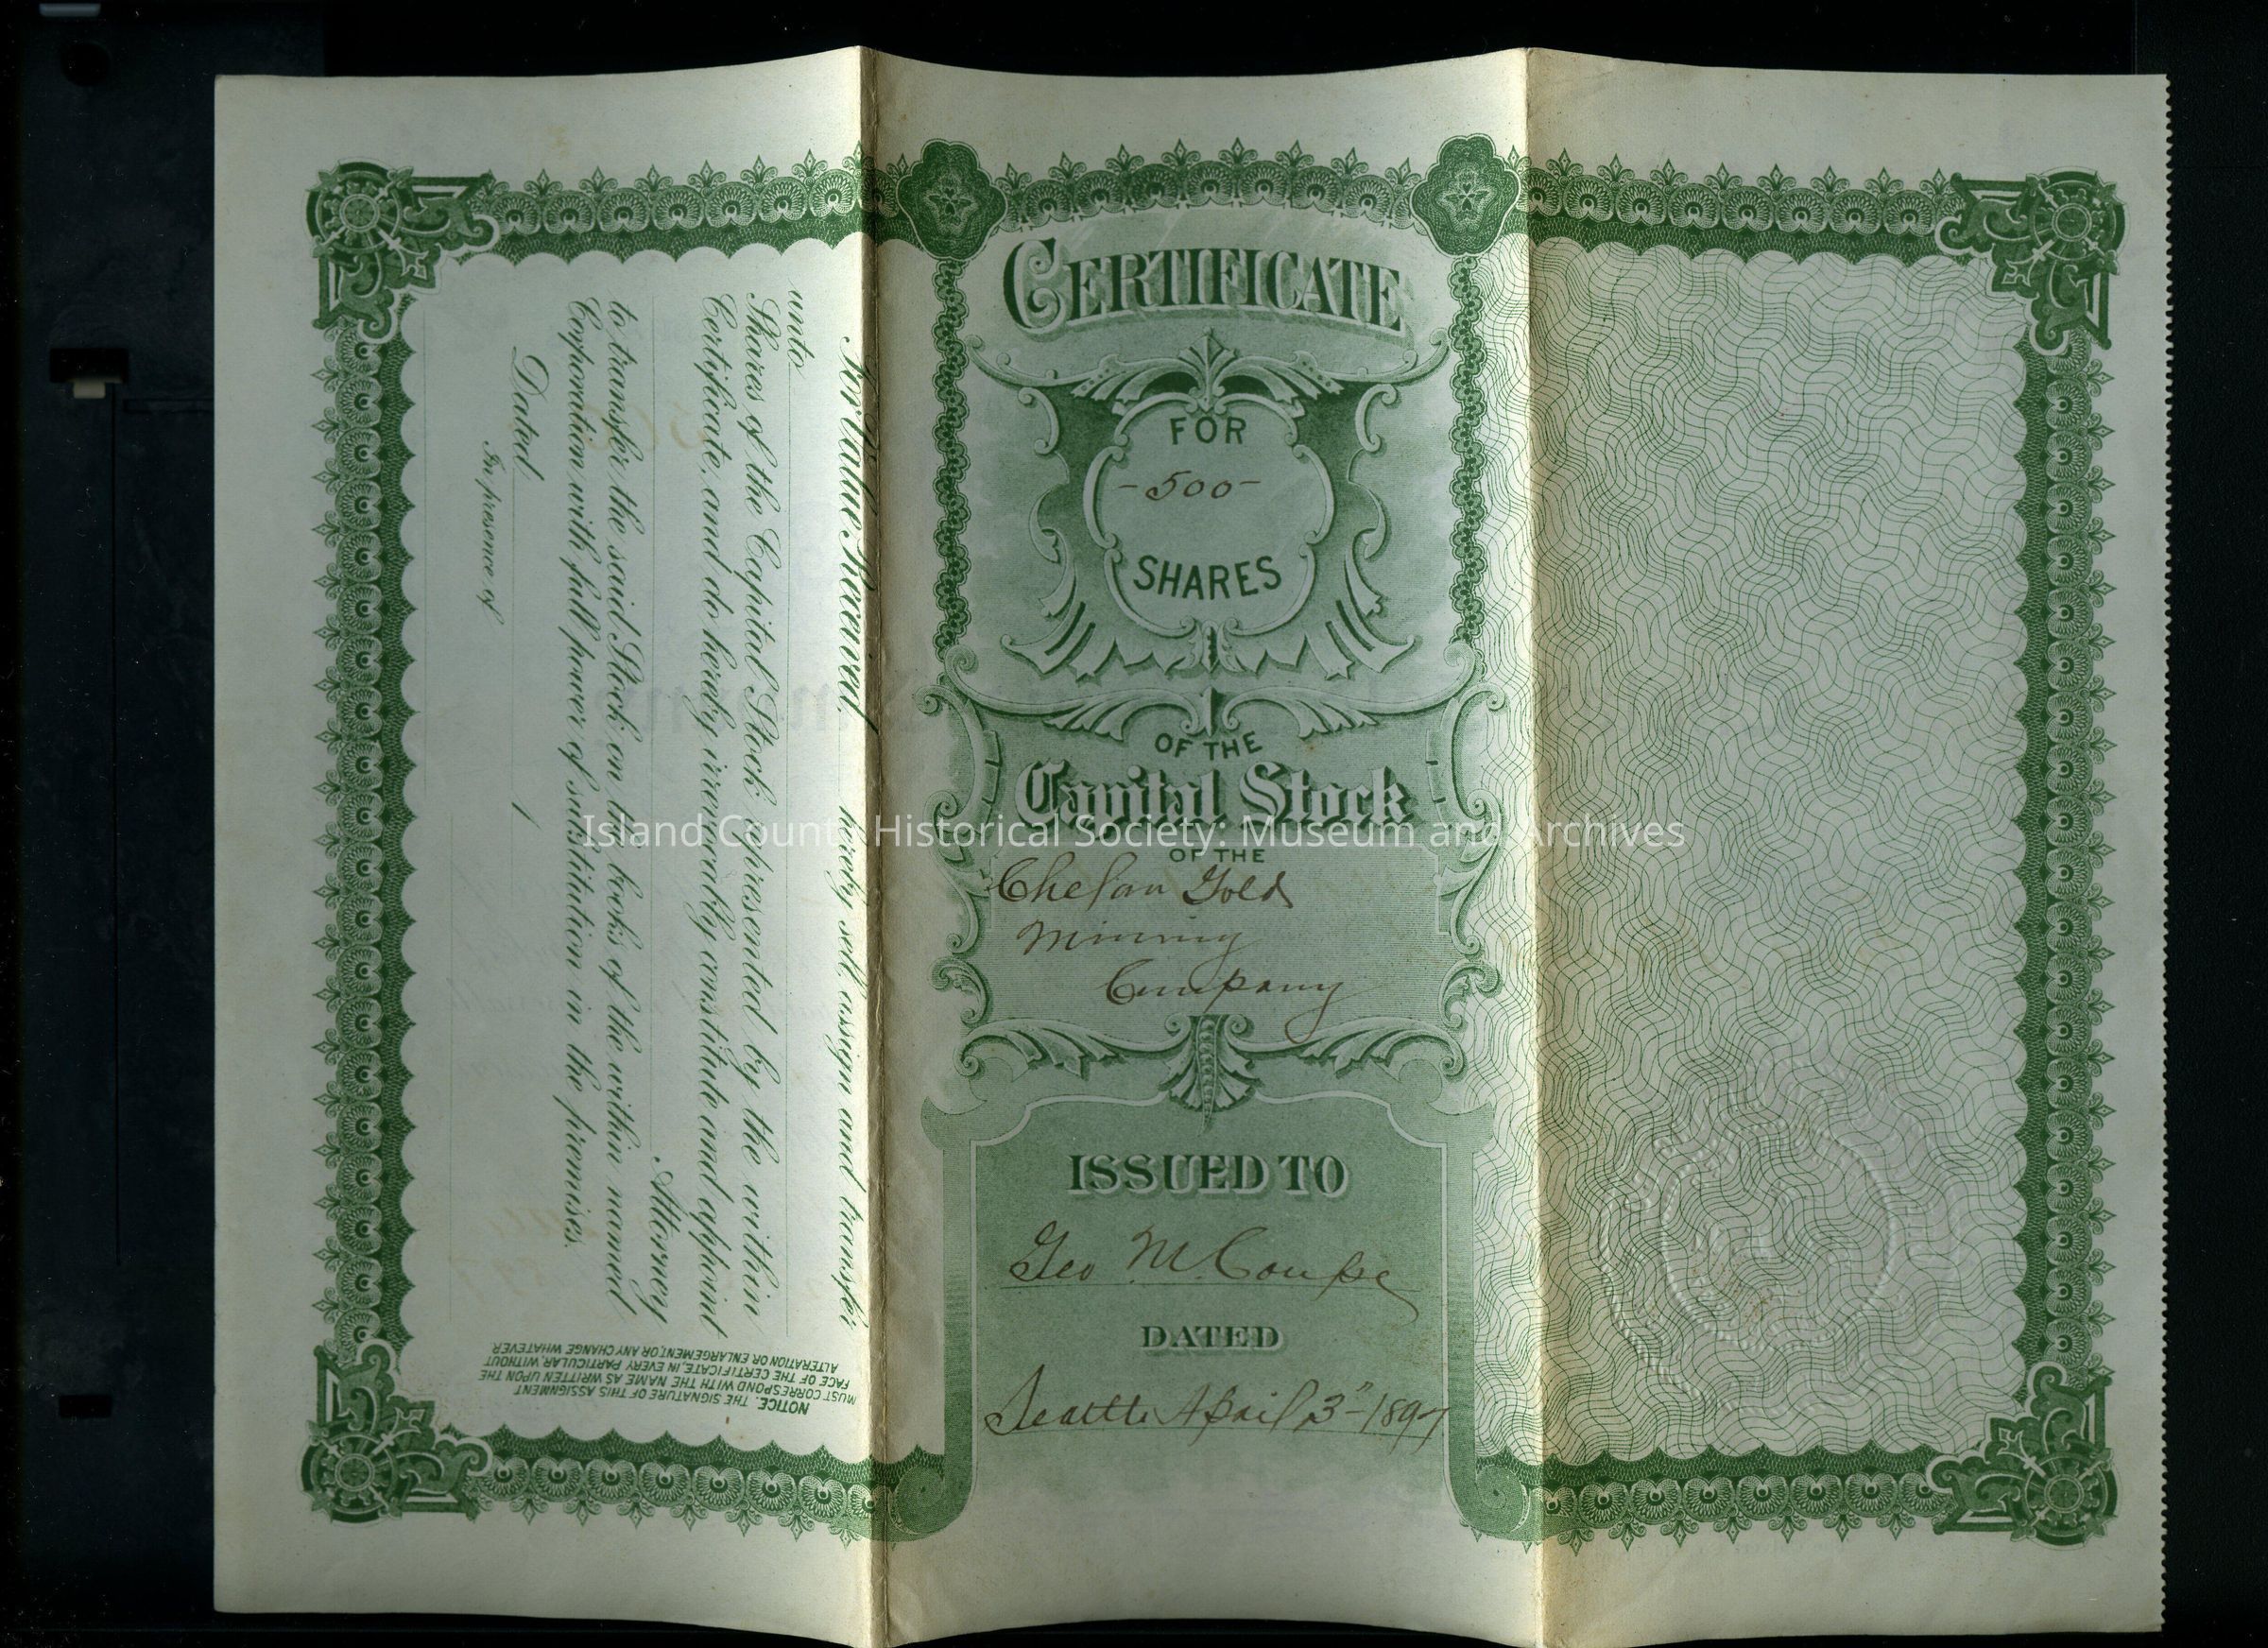 CERTIFICATE
FOR
-500-
SHARES
OF THE
Capital Stock
OF THE
Chelan Gold
Mining
Company
ISSUED TO
Geo M. Coupe
DATED
Seattle April 3" 1897
For Value Received, hereby sell, assign and transfer
unto
Shares of the Capital Stock represented by the within
Certificate, and do hereby irrevocably constitute and appoint
Attorney
to transfer the said Stock on the books of the within named
Corporation with full power of substitution in the premises.
Dated 1
In presence of
NOTICE. THE SIGNATURE OF THIS ASSIGNMENT
MUST CORRESPOND WITH THE NAME AS WRITTEN UPON THE
FACE OF THE CERTIFICATE, IN EVERY PARTICULAR, WITHOUT
ALTERATION OR ENLARGEMENT, OR ANY CHANGE WHATEVER
Island County Historical Society: Museum and Archives